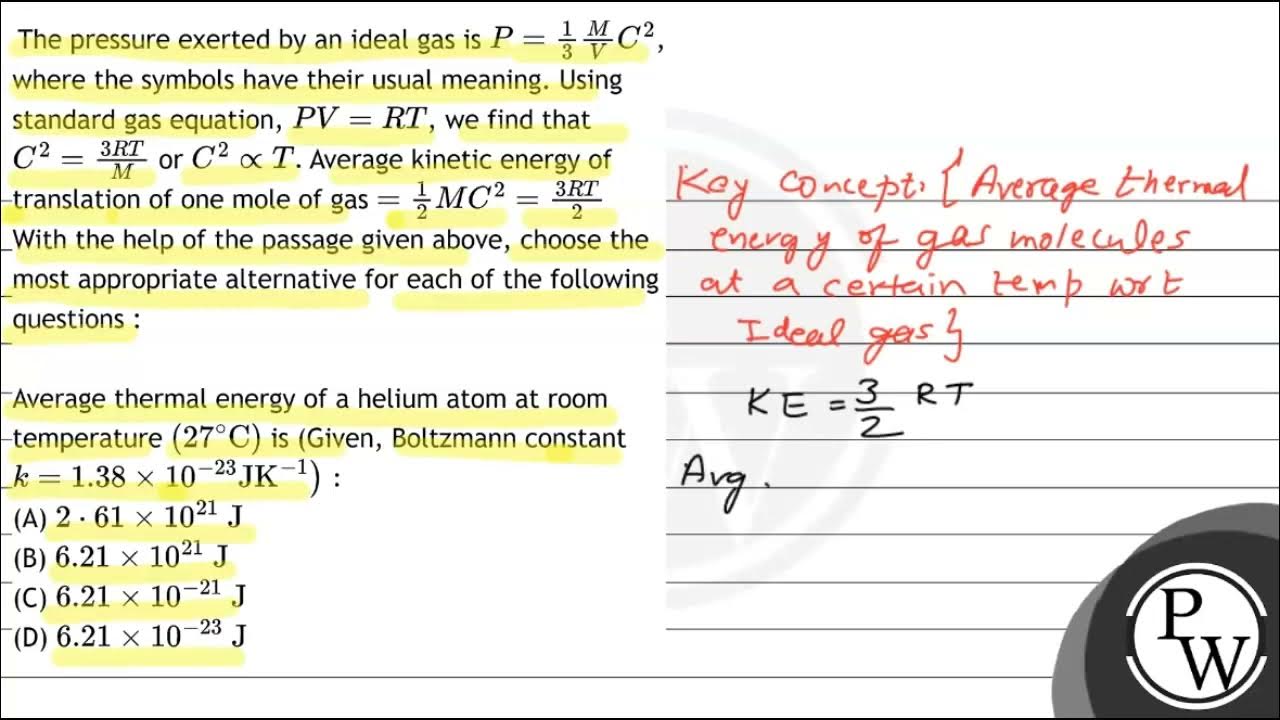 The pressure exerted by an ideal gas is P = 1/3 M/V C²,
where the symbols have their usual meaning. Using
standard gas equation, PV = RT, we find that
C² = 3RT/M or C² ∝ T. Average kinetic energy of
translation of one mole of gas = 1/2 MC² = 3RT/2
With the help of the passage given above, choose the
most appropriate alternative for each of the following
questions :
Average thermal energy of a helium atom at room
temperature (27°C) is (Given, Boltzmann constant
k = 1.38 × 10⁻²³ JK⁻¹) :
(A) 2 · 61 × 10²¹ J
(B) 6.21 × 10²¹ J
(C) 6.21 × 10⁻²¹ J
(D) 6.21 × 10⁻²³ J
Key concept. { Average thermal
energy of gas molecules
at a certain temp wrt
Ideal gas }
KE = 3/2 RT
Avg .
P
W